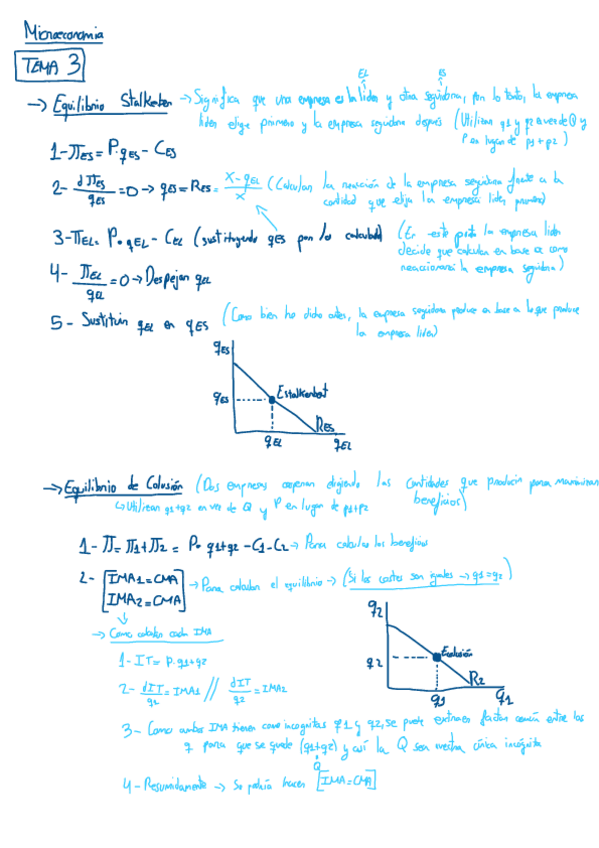 Microeconomia
TEMA 3
EL ES
→ Equilibrio Stalkeber → Significa que una empresa es la lider y otra seguidora, por lo tanto, la empresa
lider elige primero y la empresa seguidora después (Utilizar q1 y q2 en vez de Q y
P en lugar de p1+p2)
1- ΠES = P·qES - CES
2- dΠES/qES = 0 → qES = RES = X-qEL/X (Calculan la reacción de la empresa seguidora frente a la
cantidad que elija la empresa lider primero)
3- ΠEL = P·qEL - CEL (sustituyendo qES por lo calculado) (En este punto la empresa lider
decide que calcular en base a como
reaccionará la empresa seguidora)
4- ΠEL/qEL = 0 → Despejar qEL
5- Sustituir qEL en qES (Como bien he dicho antes, la empresa seguidora produce en base a lo que produce
la empresa lider)
qES
Estalkenbert
qES
RES
qEL qEL
→ Equilibrio de Colusión (Dos empresas cooperan eligiendo las cantidades que producir para maximizar
beneficios)
↳ Utilizar q1+q2 en vez de Q y P en lugar de p1+p2
1- Π = Π1+Π2 = P· q1+q2 - C1 - C2 → Para calcular los beneficios
2- [IMA1 = CMA
IMA2 = CMA] → Para calcular el equilibrio → (Si los costes son iguales → q1=q2)
→ Como calcular cada IMA
1- IT = p·q1+q2
2- dIT/q2 = IMA1 // dIT/q2 = IMA2
q2
Ecolusión
q2
R2
q1 q1
3- Como ambos IMA tienen como incognitas q1 y q2, se puede extraer factor común entre las
q para que se quede (q1+q2) y así la Q sea nuestra única incógnita
Q
4- Resumidamente → Se podría hacer [IMA = CMA]